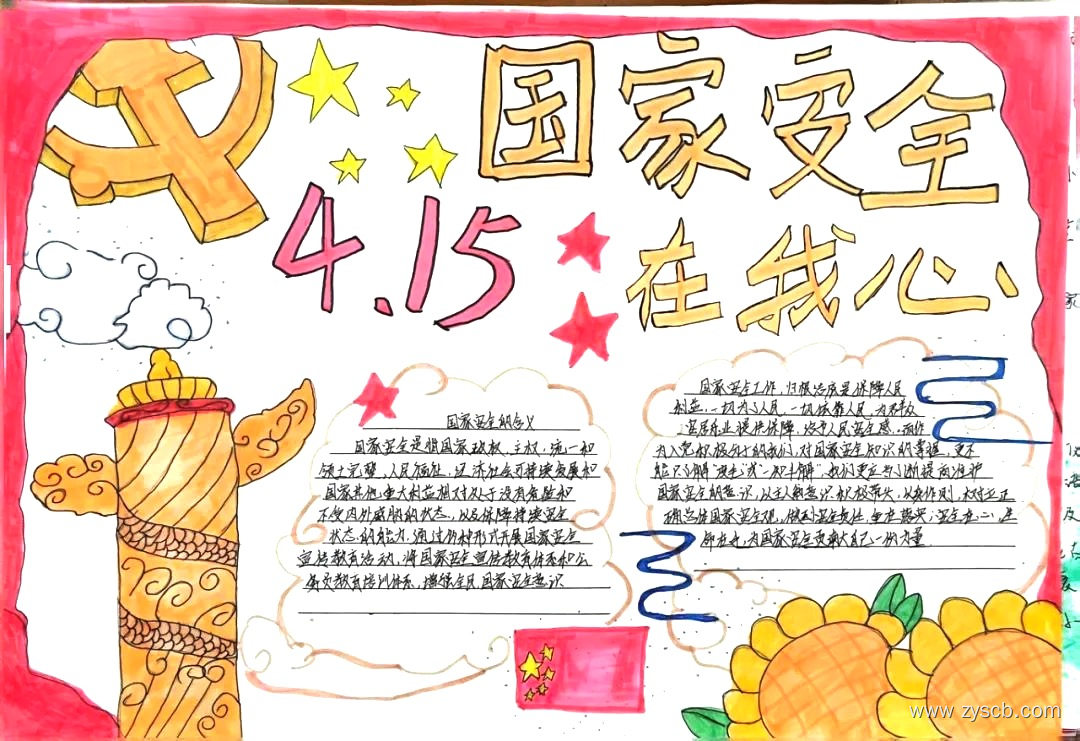 国家安全
4.15
在我心
国家安全的含义
国家安全是指国家政权、主权、统一和
领土完整、人民福祉、经济社会可持续发展和
国家其他重大利益相对处于没有危险和
不受内外威胁的状态，以及保障持续安全
状态的能力。通过多种形式开展国家安全
宣传教育活动，将国家安全宣传教育体系和公
务员教育培训体系，增强全民国家安全意识
国家安全工作，归根结底是保障人民
利益，一切为了人民、一切依靠人民，为群众
安居乐业提供保障
为入党积极分子的我们，对国家安全知识的掌握，更不
能只了解"
国家安全的意识，以主人翁意识积极带头，以身作则，树立正
确总体国家安全观，做到安全责任，重在落实；安全在心，
www.zyscb.com